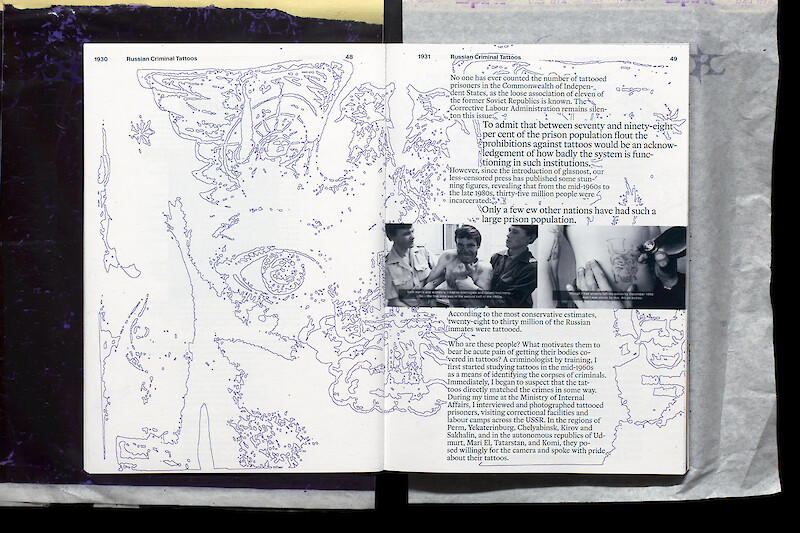 1930 Russian Criminal Tattoos 48
1931 Russian Criminal Tattoos 49
No one has ever counted the number of tattooed
prisoners in the Commonwealth of Indepen-
dent States, as the loose association of eleven of
the former Soviet Republics is known. The
Corrective Labour Administration remains silen-
ton this issue.
To admit that between seventy and ninety-eight
per cent of the prison population flout the
prohibitions against tattoos would be an acknow-
ledgement of how badly the system is func-
tioning in such institutions.
However, since the introduction of glasnost, our
less-censored press has published some stun-
ning figures, revealing that from the mid-1960s to
the late 1980s, thirty-five million people were
incarcerated.
Only a few ew other nations have had such a
large prison population.
According to the most conservative estimates,
twenty-eight to thirty million of the Russian
inmates were tattooed.
Who are these people? What motivates them to
bear he acute pain of getting their bodies co-
vered in tattoos? A criminologist by training, I
first started studying tattoos in the mid-1960s
as a means of identifying the corpses of criminals.
Immediately, I began to suspect that the tat-
toos directly matched the crimes in some way.
During my time at the Ministry of Internal
Affairs, I interviewed and photographed tattooed
prisoners, visiting correctional facilities and
labour camps across the USSR. In the regions of
Perm, Yekaterinburg, Chelyabinsk, Kirov and
Sakhalin, and in the autonomous republics of Ud-
murt, Mari El, Tatarstan, and Komi, they po-
sed willingly for the camera and spoke with pride
about their tattoos.